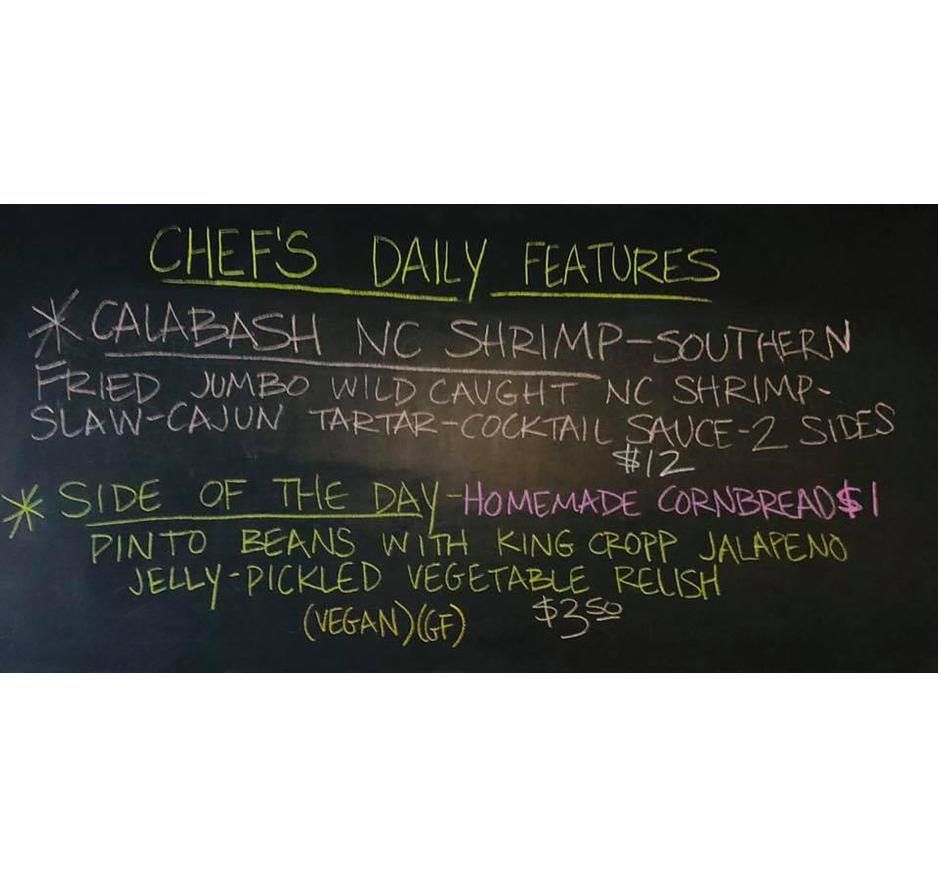 CHEF'S DAILY FEATURES
* CALABASH NC SHRIMP-SOUTHERN
FRIED JUMBO WILD CAUGHT NC SHRIMP-
SLAW-CAJUN TARTAR-COCKTAIL SAUCE-2 SIDES
$12
* SIDE OF THE DAY-HOMEMADE CORNBREAD $1
PINTO BEANS WITH KING CROPP JALAPENO
JELLY-PICKLED VEGETABLE RELISH
(VEGAN)(GF) $3.50